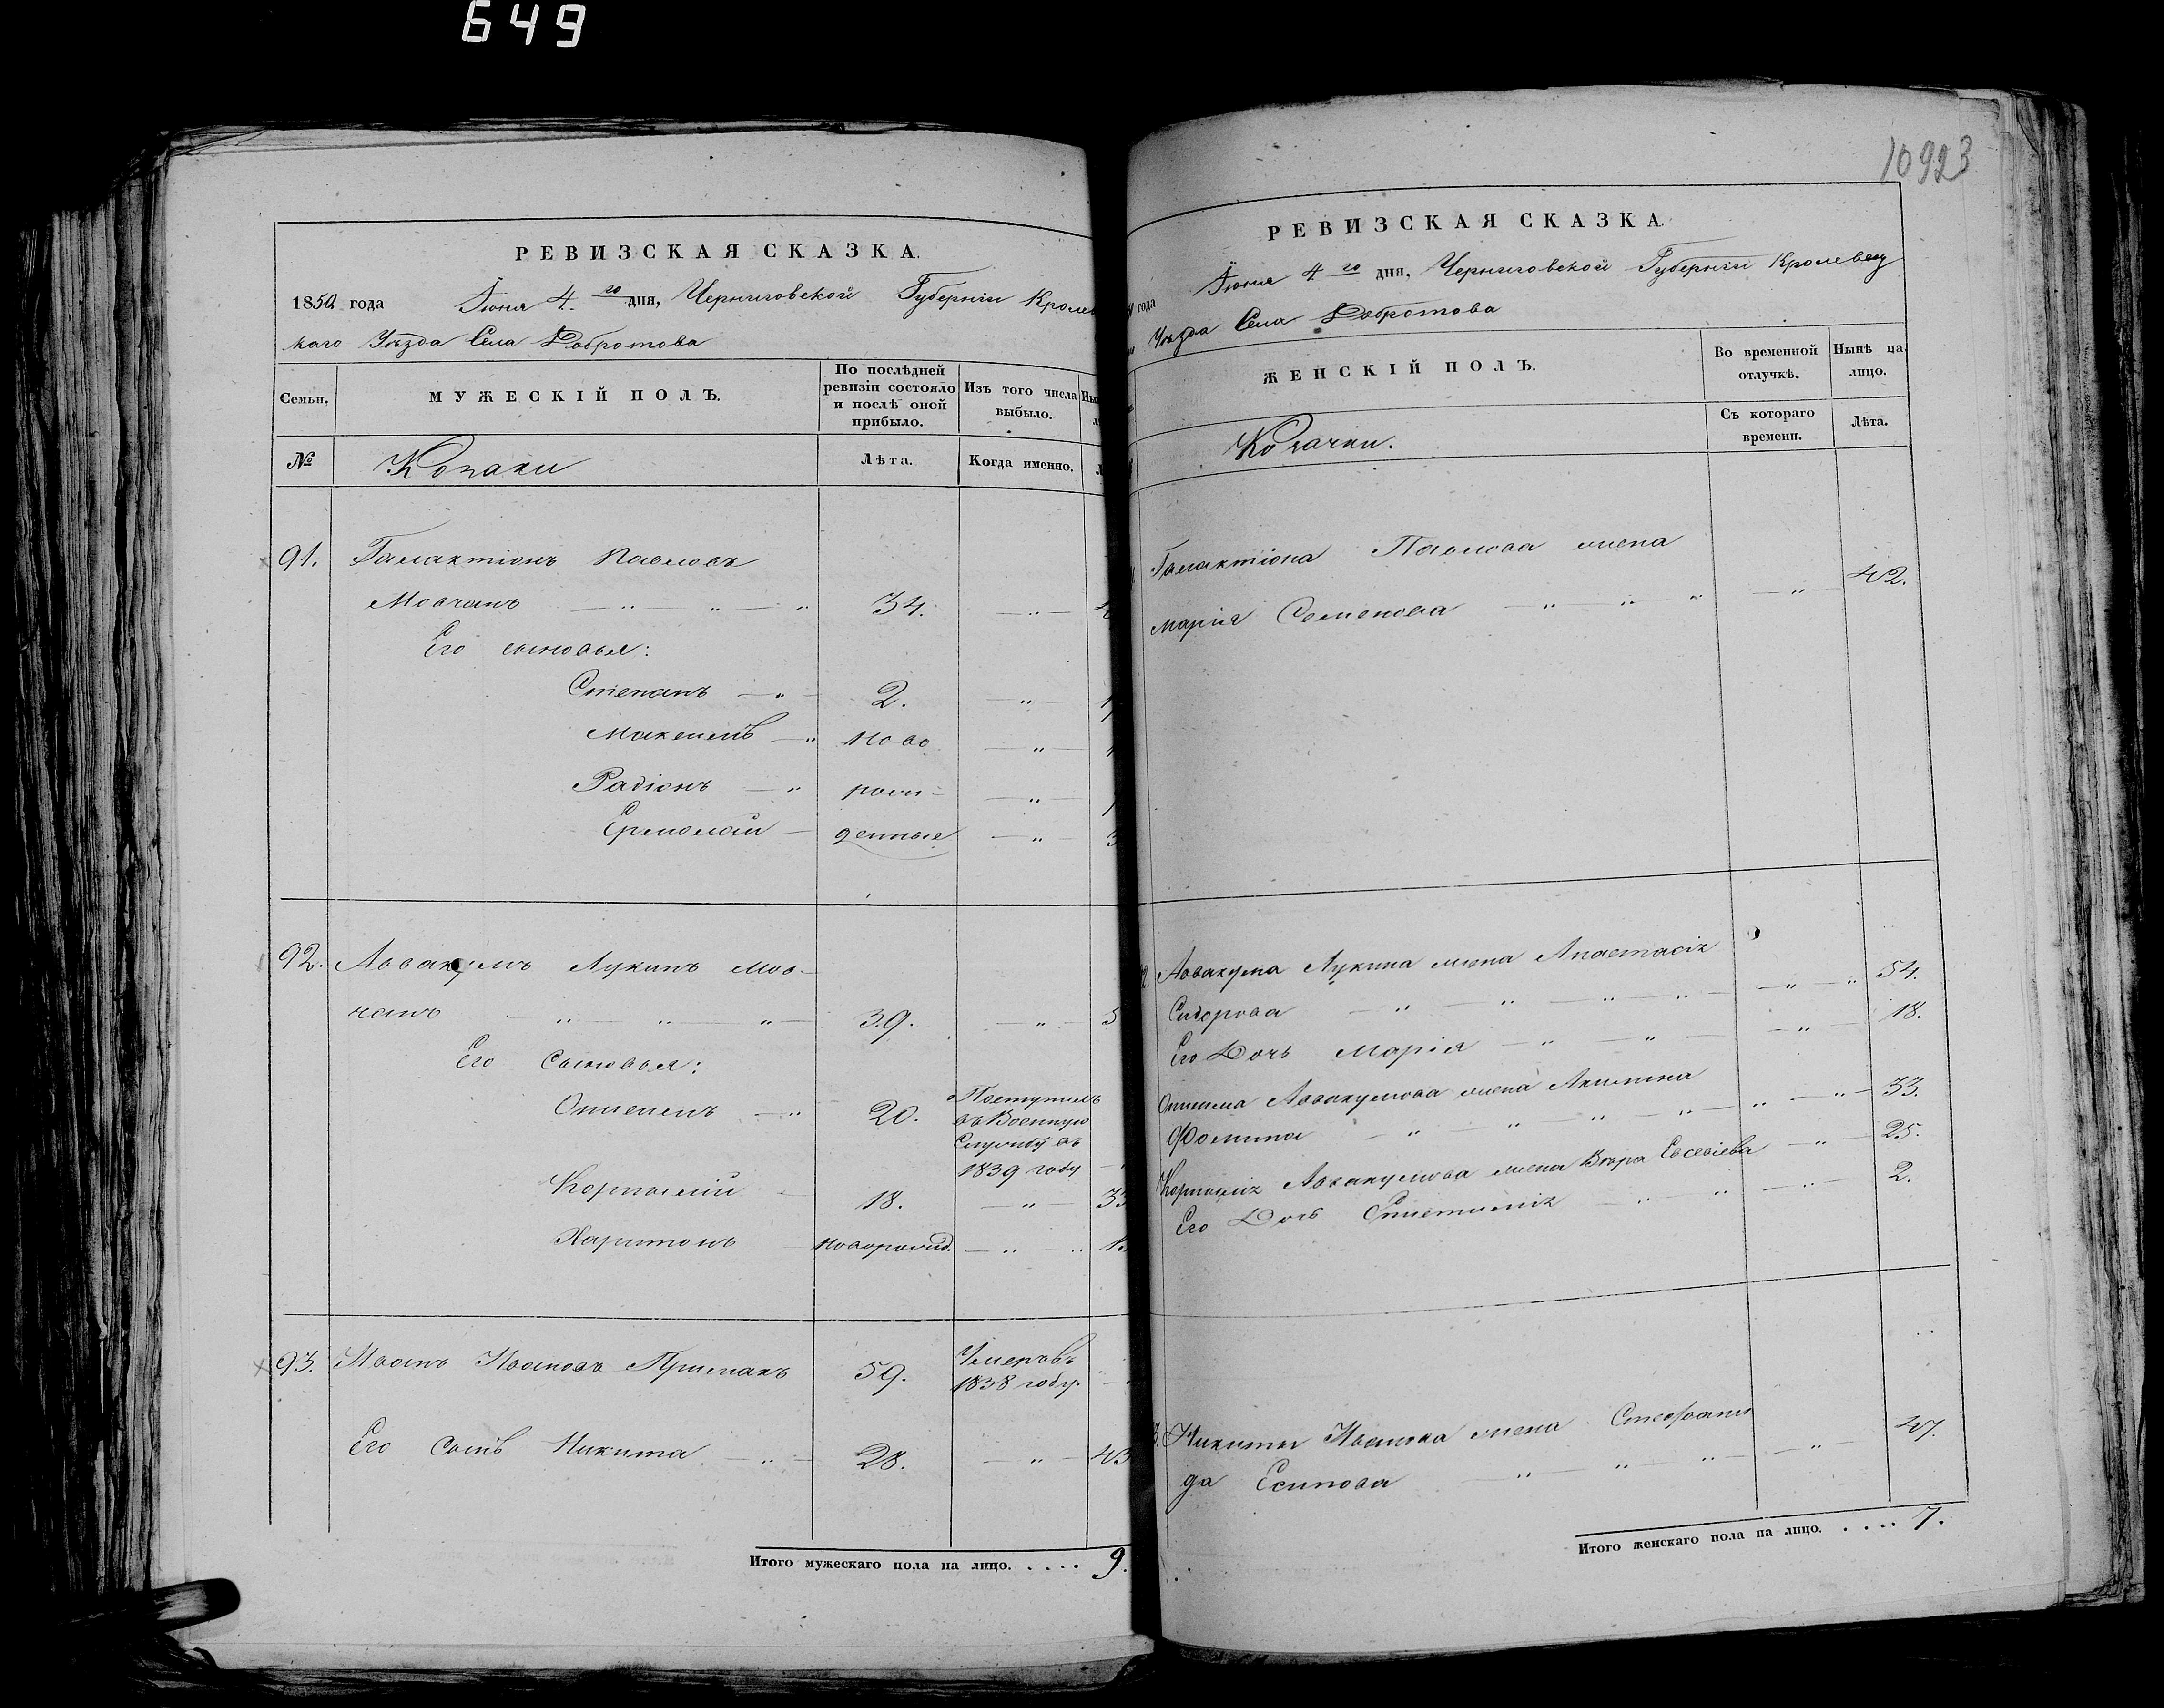 649
10923
РЕВИЗСКАЯ СКАЗКА.
1850 года Іюня 4 го дня, Черниговской Губерніи Кролев
каго Уѣзда Села Добротова
Семьи. МУЖЕСКІЙ ПОЛЪ. По послѣдней ревизіи состояло и послѣ оной прибыло. Изъ того числа выбыло.
№ Козаки Лѣта. Когда именно.
91. Галактіонъ Павловъ
Мовчанъ 34.
Его сыновья:
Степанъ 2.
Максимъ ново
Радіонъ рож
Ермолай денные
92. Аввакумъ Лукинъ Мов-
чанъ 39.
Его Сыновья:
Поступилъ
20. въ Военную
Службу въ
1839 году
Корнилій 18. 33
Харитонъ новорожд.
93. Иванъ Ивановъ Примакъ 59. Умеръ въ
1838 году.
Его Сынъ Никита 28. 43
Итого мужескаго пола на лицо. . . . . 9.
РЕВИЗСКАЯ СКАЗКА.
года Іюня 4 го дня, Черниговской Губерніи Кролевец
Уѣзда Села Добротова
ЖЕНСКІЙ ПОЛЪ. Во временной отлучкѣ. Нынѣ на лицо.
Козачки. Съ котораго времени. Лѣта.
Галактіона Павлова жена
Марія Семенова 42.
Аввакума Лукина жена Анастасія
Сидорова 54.
Его Дочь Марія 18.
Аввакумова жена Акилина
Фомина 33.
Корнилія Аввакумова жена Вѣра Евсевіева 25.
Его Дочь 2.
Никиты Иванова жена Стефани
да Есипова 47.
Итого женскаго пола на лицо. . . . . 7.